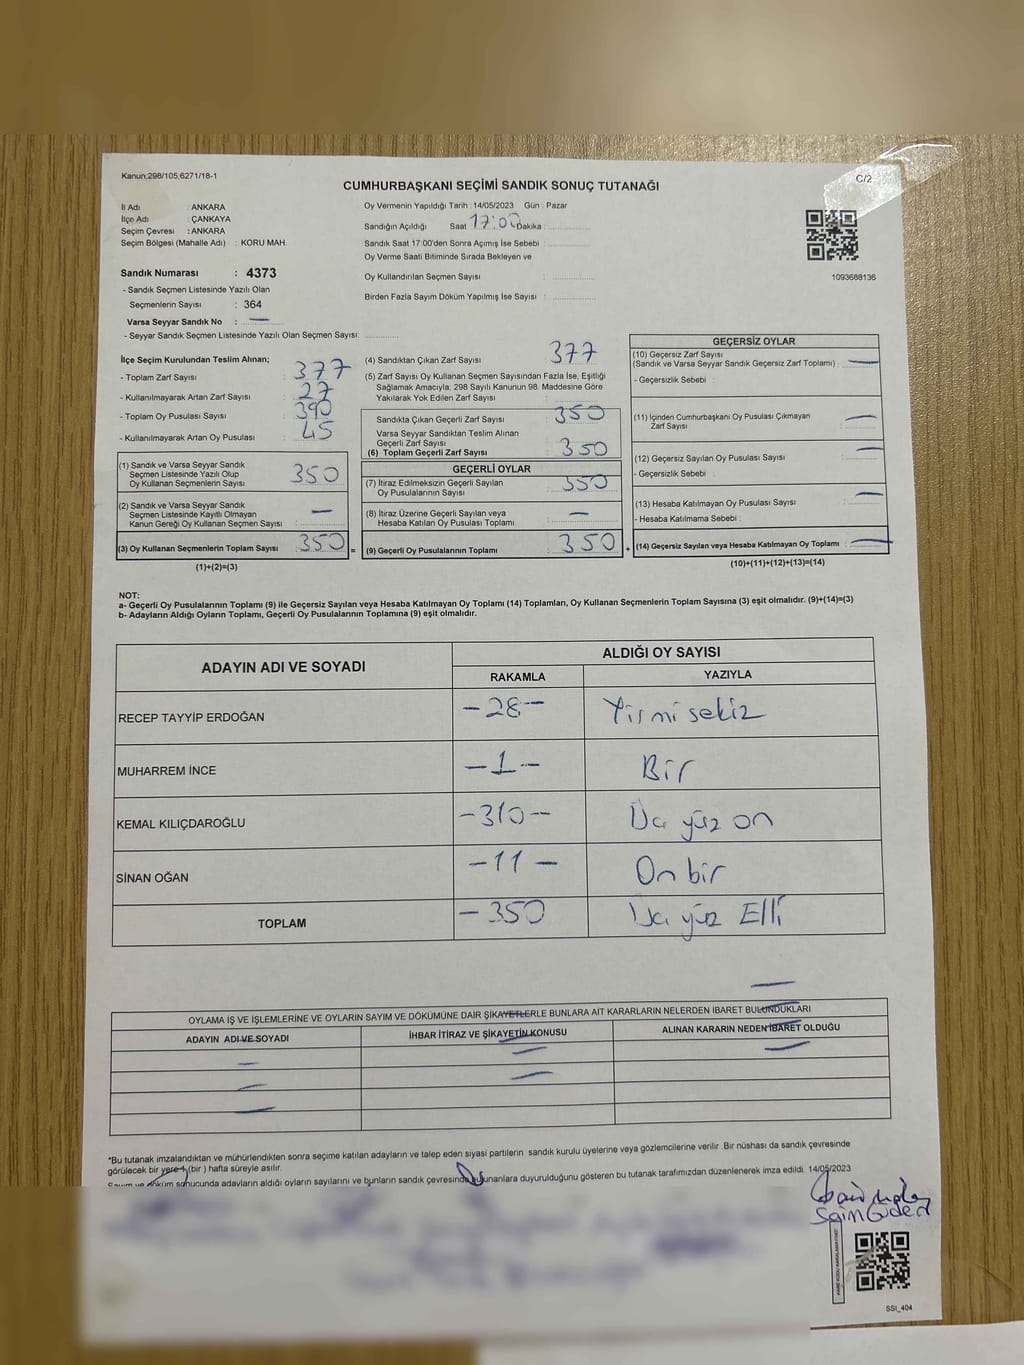 Kanun;298/105,6271/18-1
C/2
CUMHURBAŞKANI SEÇİMİ SANDIK SONUÇ TUTANAĞI
İl Adı : ANKARA
İlçe Adı : ÇANKAYA
Seçim Çevresi : ANKARA
Seçim Bölgesi (Mahalle Adı) : KORU MAH.
Oy Vermenin Yapıldığı Tarih : 14/05/2023 Gün : Pazar
Sandığın Açıldığı Saat 17:00 Dakika :
Sandık Saat 17:00'den Sonra Açımış İse Sebebi :
Oy Verme Saati Bitiminde Sırada Bekleyen ve
Oy Kullandırılan Seçmen Sayısı :
Birden Fazla Sayım Döküm Yapılmış İse Sayısı :
1093688136
Sandık Numarası : 4373
- Sandık Seçmen Listesinde Yazılı Olan
Seçmenlerin Sayısı : 364
Varsa Seyyar Sandık No : —
- Seyyar Sandık Seçmen Listesinde Yazılı Olan Seçmen Sayısı:
İlçe Seçim Kurulundan Teslim Alınan;
- Toplam Zarf Sayısı : 377
- Kullanılmayarak Artan Zarf Sayısı : 27
- Toplam Oy Pusulası Sayısı : 390
- Kullanılmayarak Artan Oy Pusulası : 45
(1) Sandık ve Varsa Seyyar Sandık
Seçmen Listesinde Yazılı Olup
Oy Kullanan Seçmenlerin Sayısı : 350
(2) Sandık ve Varsa Seyyar Sandık
Seçmen Listesinde Kayıtlı Olmayan
Kanun Gereği Oy Kullanan Seçmen Sayısı : —
(3) Oy Kullanan Seçmenlerin Toplam Sayısı : 350 =
(1)+(2)=(3)
(4) Sandıktan Çıkan Zarf Sayısı : 377
(5) Zarf Sayısı Oy Kullanan Seçmen Sayısından Fazla İse, Eşitliği
Sağlamak Amacıyla, 298 Sayılı Kanunun 98. Maddesine Göre
Yakılarak Yok Edilen Zarf Sayısı :
Sandıkta Çıkan Geçerli Zarf Sayısı : 350
Varsa Seyyar Sandıktan Teslim Alınan
Geçerli Zarf Sayısı :
(6) Toplam Geçerli Zarf Sayısı : 350
GEÇERLİ OYLAR
(7) İtiraz Edilmeksizin Geçerli Sayılan
Oy Pusulalarının Sayısı : 350
(8) İtiraz Üzerine Geçerli Sayılan veya
Hesaba Katılan Oy Pusulası Toplamı : —
(9) Geçerli Oy Pusulalarının Toplamı : 350 +
GEÇERSİZ OYLAR
(10) Geçersiz Zarf Sayısı
(Sandık ve Varsa Seyyar Sandık Geçersiz Zarf Toplamı) : —
- Geçersizlik Sebebi :
(11) İçinden Cumhurbaşkanı Oy Pusulası Çıkmayan
Zarf Sayısı : —
(12) Geçersiz Sayılan Oy Pusulası Sayısı : —
- Geçersizlik Sebebi :
(13) Hesaba Katılmayan Oy Pusulası Sayısı : —
- Hesaba Katılmama Sebebi :
(14) Geçersiz Sayılan veya Hesaba Katılmayan Oy Toplamı : —
(10)+(11)+(12)+(13)=(14)
NOT:
a- Geçerli Oy Pusulalarının Toplamı (9) ile Geçersiz Sayılan veya Hesaba Katılmayan Oy Toplamı (14) Toplamları, Oy Kullanan Seçmenlerin Toplam Sayısına (3) eşit olmalıdır. (9)+(14)=(3)
b- Adayların Aldığı Oyların Toplamı, Geçerli Oy Pusulalarının Toplamına (9) eşit olmalıdır.
ADAYIN ADI VE SOYADI ALDIĞI OY SAYISI
RAKAMLA YAZIYLA
RECEP TAYYİP ERDOĞAN -28- Yirmi sekiz
MUHARREM İNCE -1- Bir
KEMAL KILIÇDAROĞLU -310- Üç yüz on
SİNAN OĞAN -11- On bir
TOPLAM -350 Üç yüz Elli
OYLAMA İŞ VE İŞLEMLERİNE VE OYLARIN SAYIM VE DÖKÜMÜNE DAİR ŞİKAYETLERLE BUNLARA AİT KARARLARIN NELERDEN İBARET BULUNDUKLARI
ADAYIN ADI VE SOYADI İHBAR İTİRAZ VE ŞİKAYETİN KONUSU ALINAN KARARIN NEDEN İBARET OLDUĞU
*Bu tutanak imzalandıktan ve mühürlendikten sonra seçime katılan adayların ve talep eden siyasi partilerin sandık kurulu üyelerine veya gözlemcilerine verilir .Bir nüshası da sandık çevresinde
görülecek bir yere 1 (bir ) hafta süreyle asılır.
Sayım ve döküm sonucunda adayların aldığı oyların sayılarını ve bunların sandık çevresinde bulunanlara duyurulduğunu gösteren bu tutanak tarafımızdan düzenlenerek imza edildi. 14/05/2023
SSİ_404